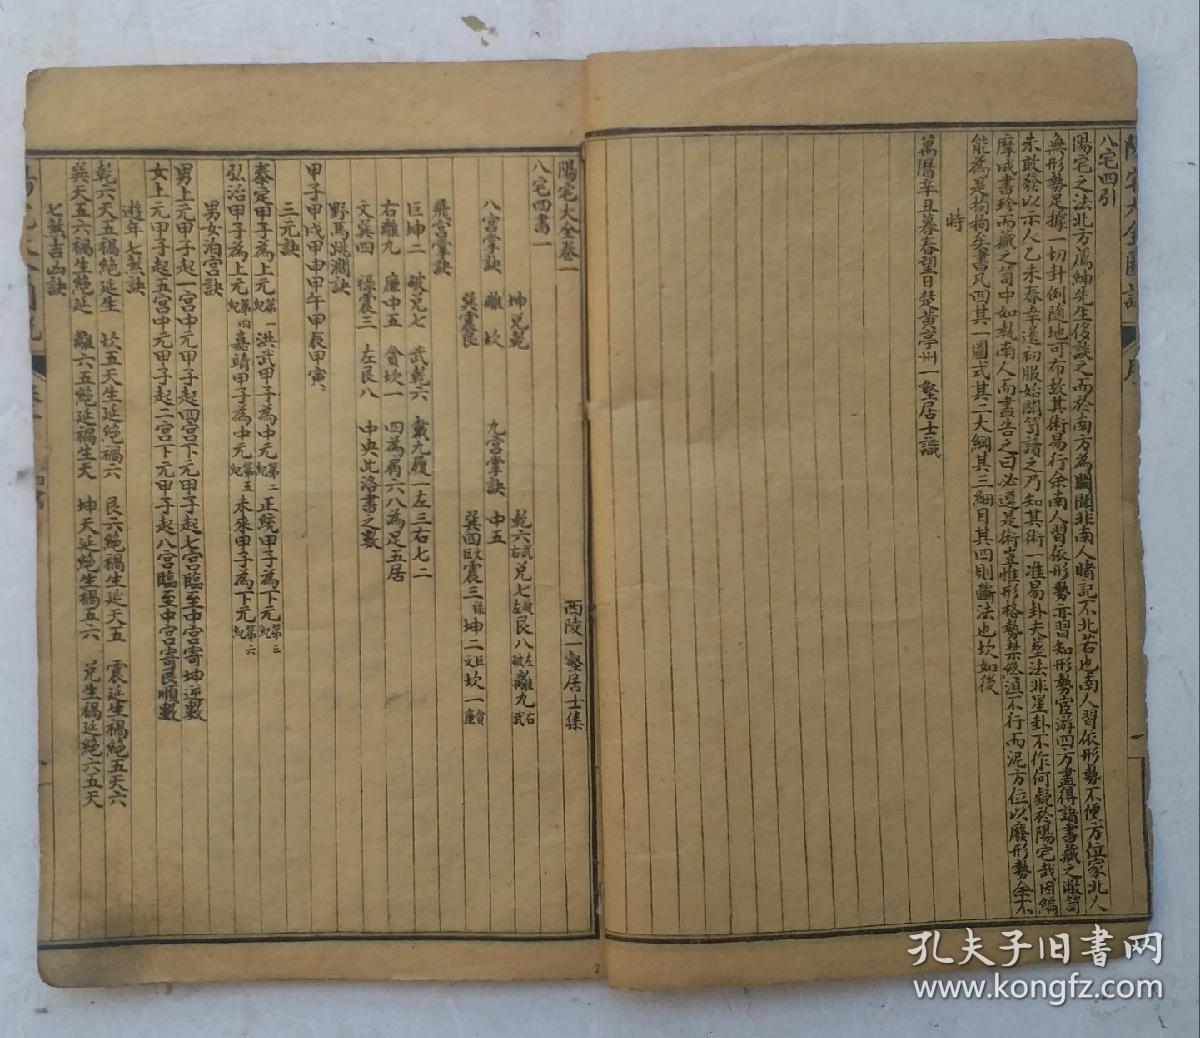 八宅四引
陽宅之法北方為紳先生侈談之而於南方為闕聞非南人睹記不北若也南人習依形勢不便方位家北人
無形勢足據一切卦例隨地可布故其術易行余南人習依形勢亦習知形勢宮游四方盡得諸書藏之敝笥
未敢發以示人乙未泰幸還初服始開笥讀之乃知其術一准易卦夫塋法非星卦不作何疑於陽宅哉因編
摩成書珍而藏之笥中如執南人而盡告之曰必遵是術豈惟形格勢禁慾滇不行而泥方位以廢形勢余不
能為是拘拘矣書凡四其一圖式其二大綱其三細目其四則斷法也坎如後
時
萬曆辛丑暮春望日楚黃亭州一壑居士識
陽宅大全卷一 西陵一壑居士集
八宅四書一
坤兌乾 乾六武右兌七破左艮八左破離九右武
八宮掌訣 離 坎 九宮掌訣 中五
巽震艮 巽四 震三祿坤二巨文坎一貪廉
飛宮掌訣
巨坤二 破兌七 武乾六 戴九履一左三右七二
右離九 廉中五 貪坎一 四為肩六八為足五居
文巽四 祿震三 左艮八 中央此洛書之數
野馬跳澗訣
甲子甲戌甲申甲午甲辰甲寅
三元訣
泰定甲子為上元第一紀洪武甲子為中元第二紀正統甲子為下元第三紀
弘治甲子為上元第四紀嘉靖甲子為中元第五紀未來甲子為下元第六紀
男女泊宮訣
男上元甲子起一宮中元甲子起四宮下元甲子起七宮臨至中宮寄坤逆數
女上元甲子起五宮中元甲子起二宮下元甲子起八宮臨至中宮寄艮順數
遊年七煞訣
乾六天五禍絕延生 坎五天生延絕禍六 艮六絕禍生延天五 震延生禍絕五天六
巽天五六禍生絕延 離六五絕延禍生天 坤天延絕生禍五六 兌生禍延絕六五天
七煞吉凶訣
孔夫子旧書网
www.kongfz.com